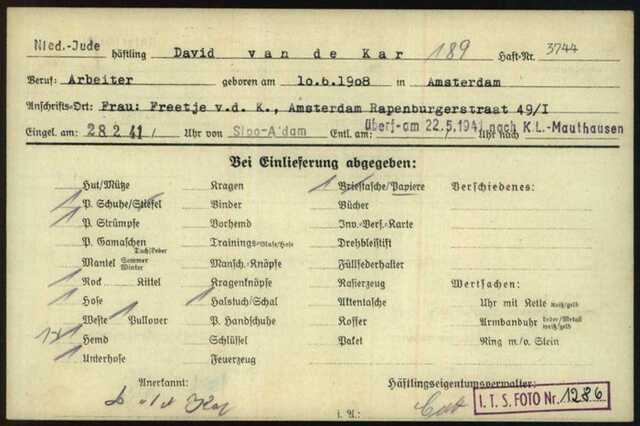 Nied.-Jude Häftling David van de Kar 189 Haft-Nr. 3744
Beruf: Arbeiter geboren am 10.6.1908 in Amsterdam
Anschrifts-Ort: Frau: Freetje v.d. K., Amsterdam Rapenburgerstraat 49/I
Eingel. am 28.2.41 Uhr von Sipo-A'dam Entl. am überf. am 22.5.1941 nach K.L.-Mauthausen Uhr nach
Bei Einlieferung abgegeben:
Hut/Mütze Kragen 1 Brieftasche/Papiere Verschiedenes:
1 P. Schuhe/Stiefel Binder Bücher
1 P. Strümpfe Vorhemd Inv.-Vers.-Karte
P. Gamaschen Tuch/Leder Trainings-Bluse/Hose Drehbleistift
Mantel Sommer Winter Mansch.-Knöpfe Füllfederhalter
1 Rock Kittel Kragenknöpfe Rasierzeug Wertsachen:
1 Hose 1 Halstuch/Schal Aktentasche Uhr mit Kette weiß/gelb
Weste 1 Pullover P. Handschuhe Koffer Armbanduhr Leder/Metall weiß/gelb
1+1 Hemd Schlüssel Paket Ring m/o. Stein
1 Unterhose Feuerzeug
Anerkannt: Häftlingseigentumsverwalter:
i. A.: I. T. S. FOTO Nr. 1286